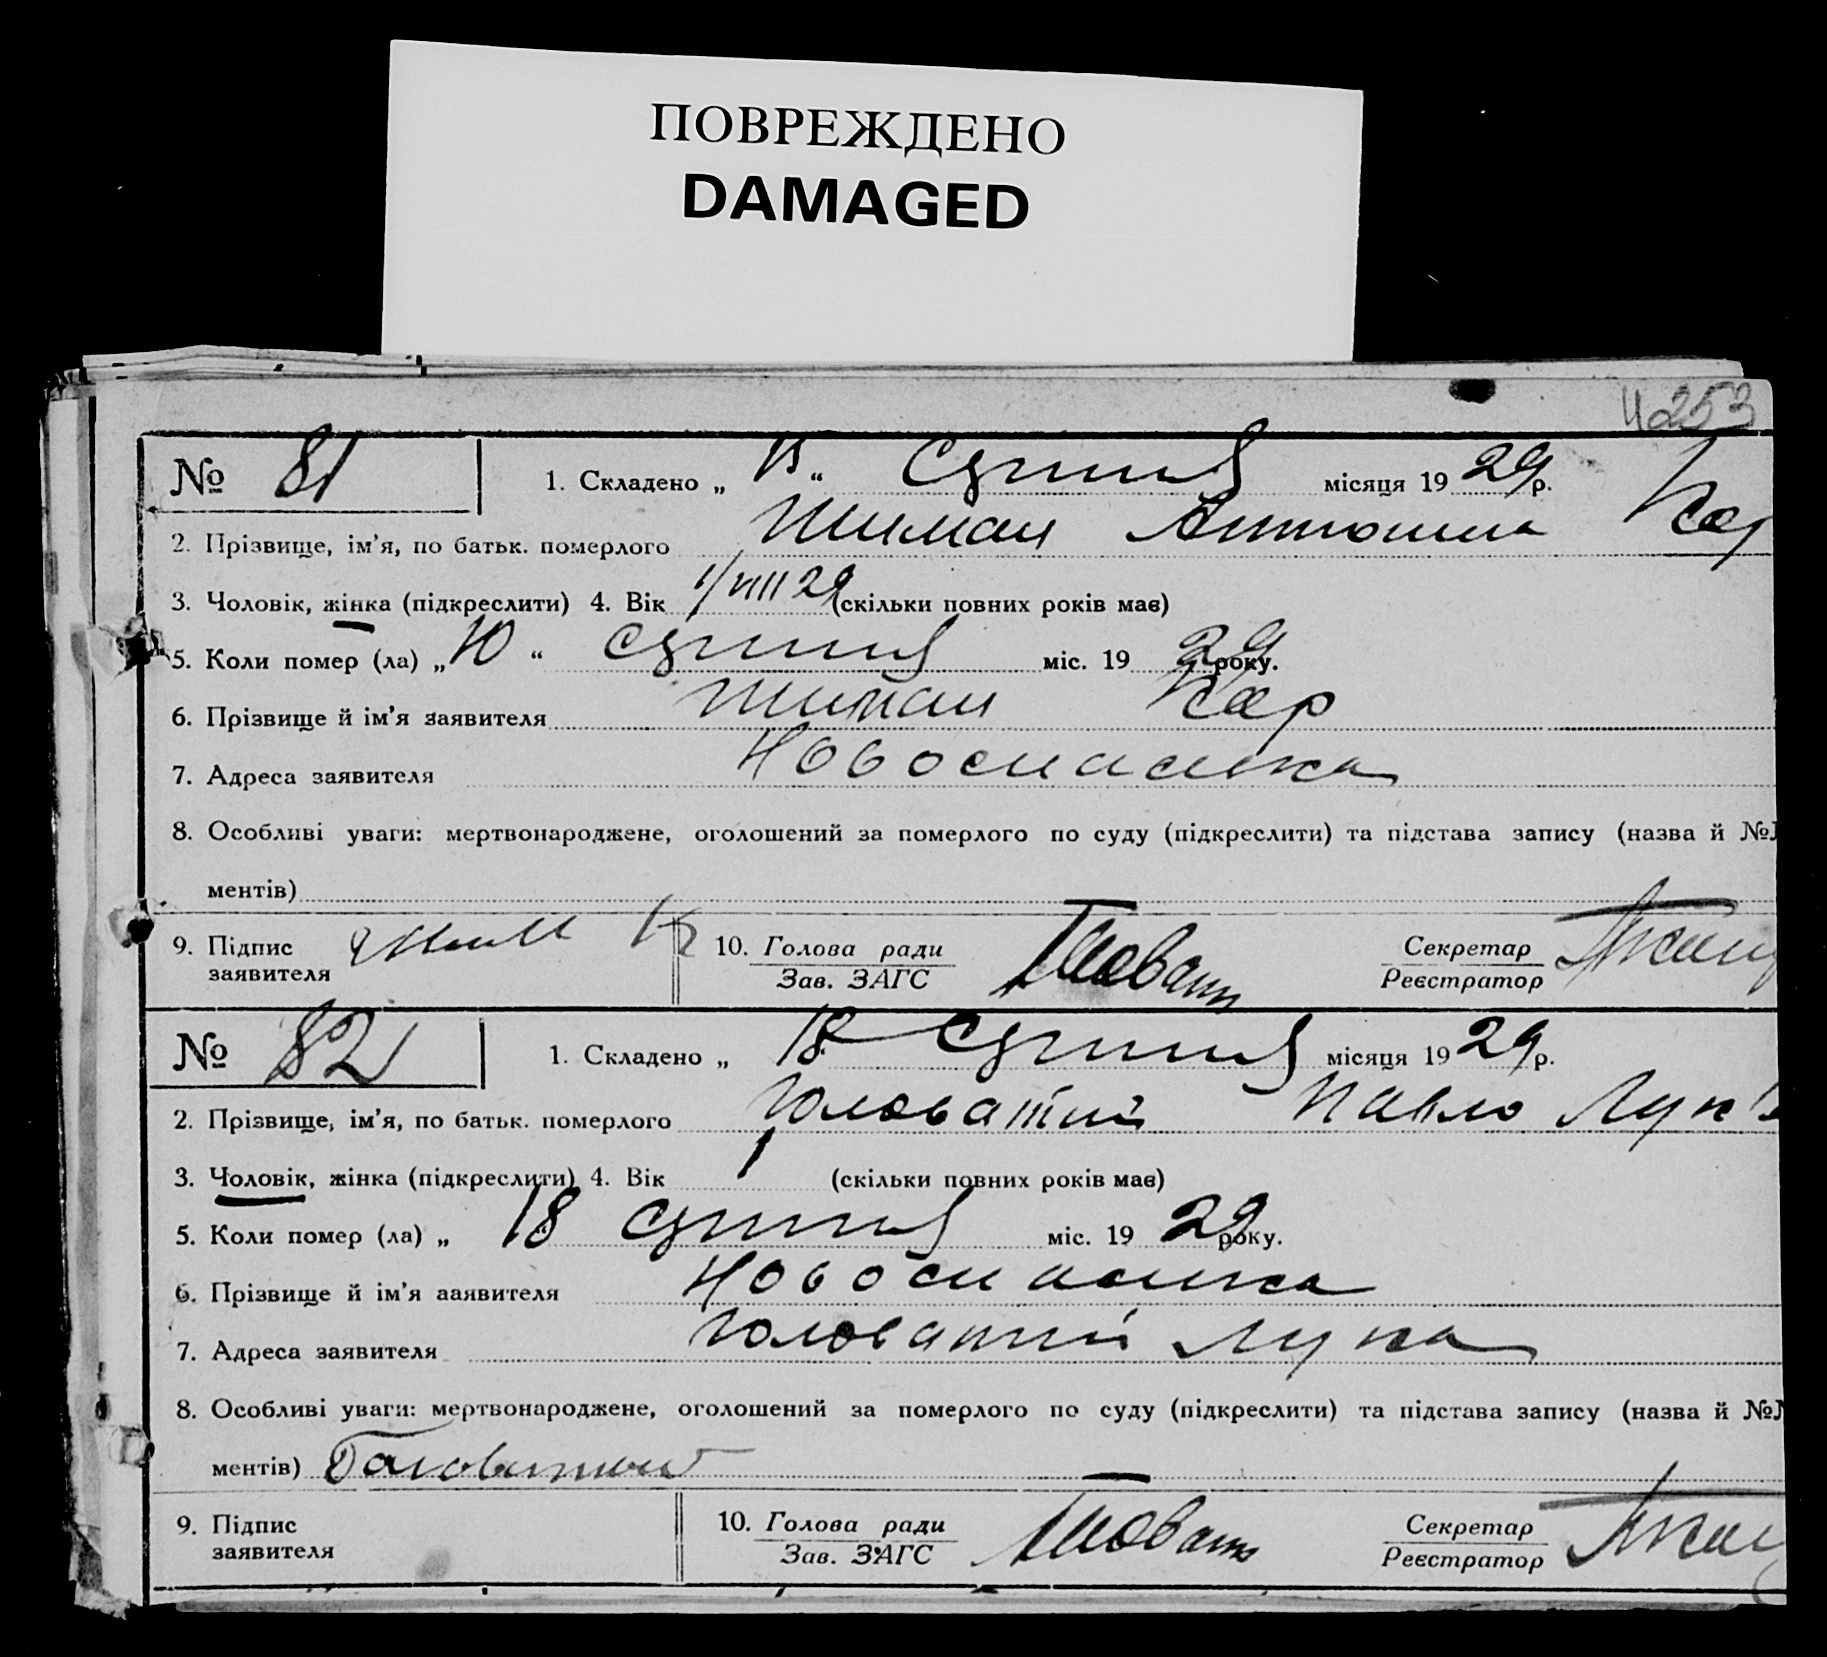 ПОВРЕЖДЕНО
DAMAGED
253
№ 81 1. Складено „ “ Серпня місяця 19 29 р.
2. Прізвище, ім'я, по батьк. померлого Шиман Антонина Кар
3. Чоловік, жінка (підкреслити) 4. Вік 1/VIII 29 (скільки повних років має)
5. Коли помер (ла) „ 10 “ Серпня міс. 19 29 року.
6. Прізвище й ім'я заявителя Шиман Кар
7. Адреса заявителя Новоспаська
8. Особливі уваги: мертвонароджене, оголошений за померлого по суду (підкреслити) та підстава запису (назва й №
ментів)
9. Підпис заявителя
10. Голова ради
Зав. ЗАГС
Секретар
Реєстратор
№ 82 1. Складено „ 18 Серпня місяця 19 29 р.
2. Прізвище, ім'я, по батьк. померлого Головатий Павло Лук
3. Чоловік, жінка (підкреслити) 4. Вік 1 (скільки повних років має)
5. Коли помер (ла) „ 18 Серпня міс. 19 29 року.
6. Прізвище й ім'я ааявителя Новоспаська
7. Адреса заявителя Головатий Лука
8. Особливі уваги: мертвонароджене, оголошений за померлого по суду (підкреслити) та підстава запису (назва й №
ментів)
9. Підпис заявителя
10. Голова ради
Зав. ЗАГС
Секретар
Реєстратор